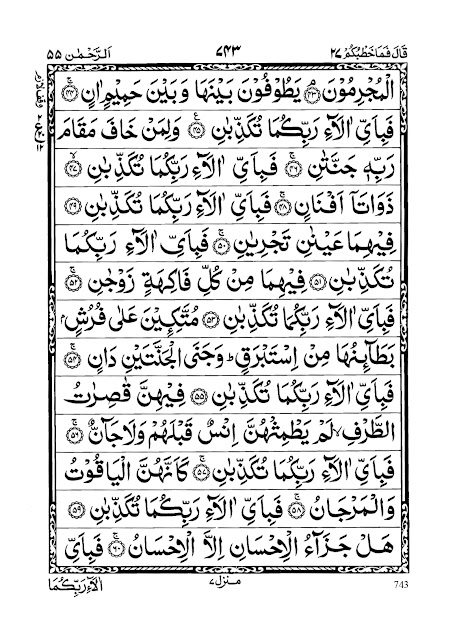 قَالَ فَمَا خَطْبُكُمْ ٢٧ ٧٤٣ اَلرَّحْمٰن ٥٥
الْمُجْرِمُوْنَ ﴿٤٣﴾ يَطُوْفُوْنَ بَيْنَهَا وَبَيْنَ حَمِيْمٍ اٰنٍ ﴿٤٤﴾
فَبِاَيِّ اٰلَآءِ رَبِّكُمَا تُكَذِّبٰنِ ﴿٤٥﴾ وَلِمَنْ خَافَ مَقَامَ
رَبِّهٖ جَنَّتٰنِ ﴿٤٦﴾ فَبِاَيِّ اٰلَآءِ رَبِّكُمَا تُكَذِّبٰنِ ﴿٤٧﴾
ذَوَاتَآ اَفْنَانٍ ﴿٤٨﴾ فَبِاَيِّ اٰلَآءِ رَبِّكُمَا تُكَذِّبٰنِ ﴿٤٩﴾
فِيْهِمَا عَيْنٰنِ تَجْرِيٰنِ ﴿٥٠﴾ فَبِاَيِّ اٰلَآءِ رَبِّكُمَا
تُكَذِّبٰنِ ﴿٥١﴾ فِيْهِمَا مِنْ كُلِّ فَاكِهَةٍ زَوْجٰنِ ﴿٥٢﴾
فَبِاَيِّ اٰلَآءِ رَبِّكُمَا تُكَذِّبٰنِ ﴿٥٣﴾ مُتَّكِـِٕيْنَ عَلٰى فُرُشٍۢ
بَطَآىِٕنُهَا مِنْ اِسْتَبْرَقٍ ؕ وَجَنَا الْجَنَّتَيْنِ دَانٍ ﴿٥٤﴾
فَبِاَيِّ اٰلَآءِ رَبِّكُمَا تُكَذِّبٰنِ ﴿٥٥﴾ فِيْهِنَّ قٰصِرٰتُ
الطَّرْفِ ۙ لَمْ يَطْمِثْهُنَّ اِنْسٌ قَبْلَهُمْ وَلَا جَآنٌّ ﴿٥٦﴾
فَبِاَيِّ اٰلَآءِ رَبِّكُمَا تُكَذِّبٰنِ ﴿٥٧﴾ كَاَنَّهُنَّ الْيَاقُوْتُ
وَالْمَرْجَانُ ﴿٥٨﴾ فَبِاَيِّ اٰلَآءِ رَبِّكُمَا تُكَذِّبٰنِ ﴿٥٩﴾
هَلْ جَزَآءُ الْاِحْسَانِ اِلَّا الْاِحْسَانُ ﴿٦٠﴾ فَبِاَيِّ
743 مَنْزِل ٧ اٰلَآءِ رَبِّكُمَا